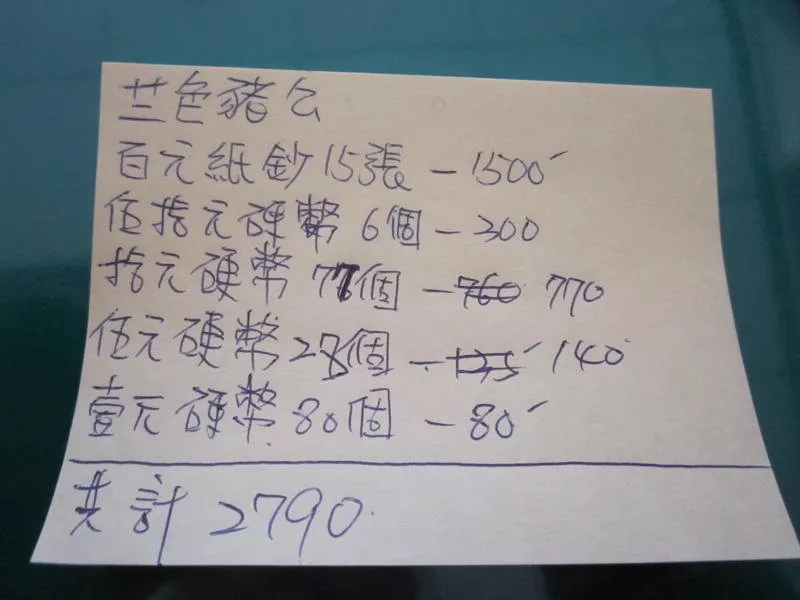 兰色豬公
百元紙鈔15張－1500
伍拾元硬幣6個－300
拾元硬幣77個－760 770
伍元硬幣28個－125 140
壹元硬幣80個－80
共計 2790